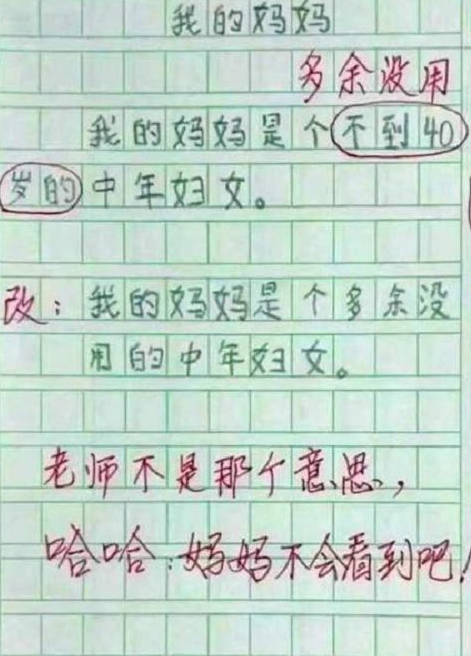 我的妈妈
多余没用
我的妈妈是个不到40
岁的中年妇女。
改：我的妈妈是个多余没
用的中年妇女。
老师不是那个意思，
哈哈：妈妈不会看到吧！